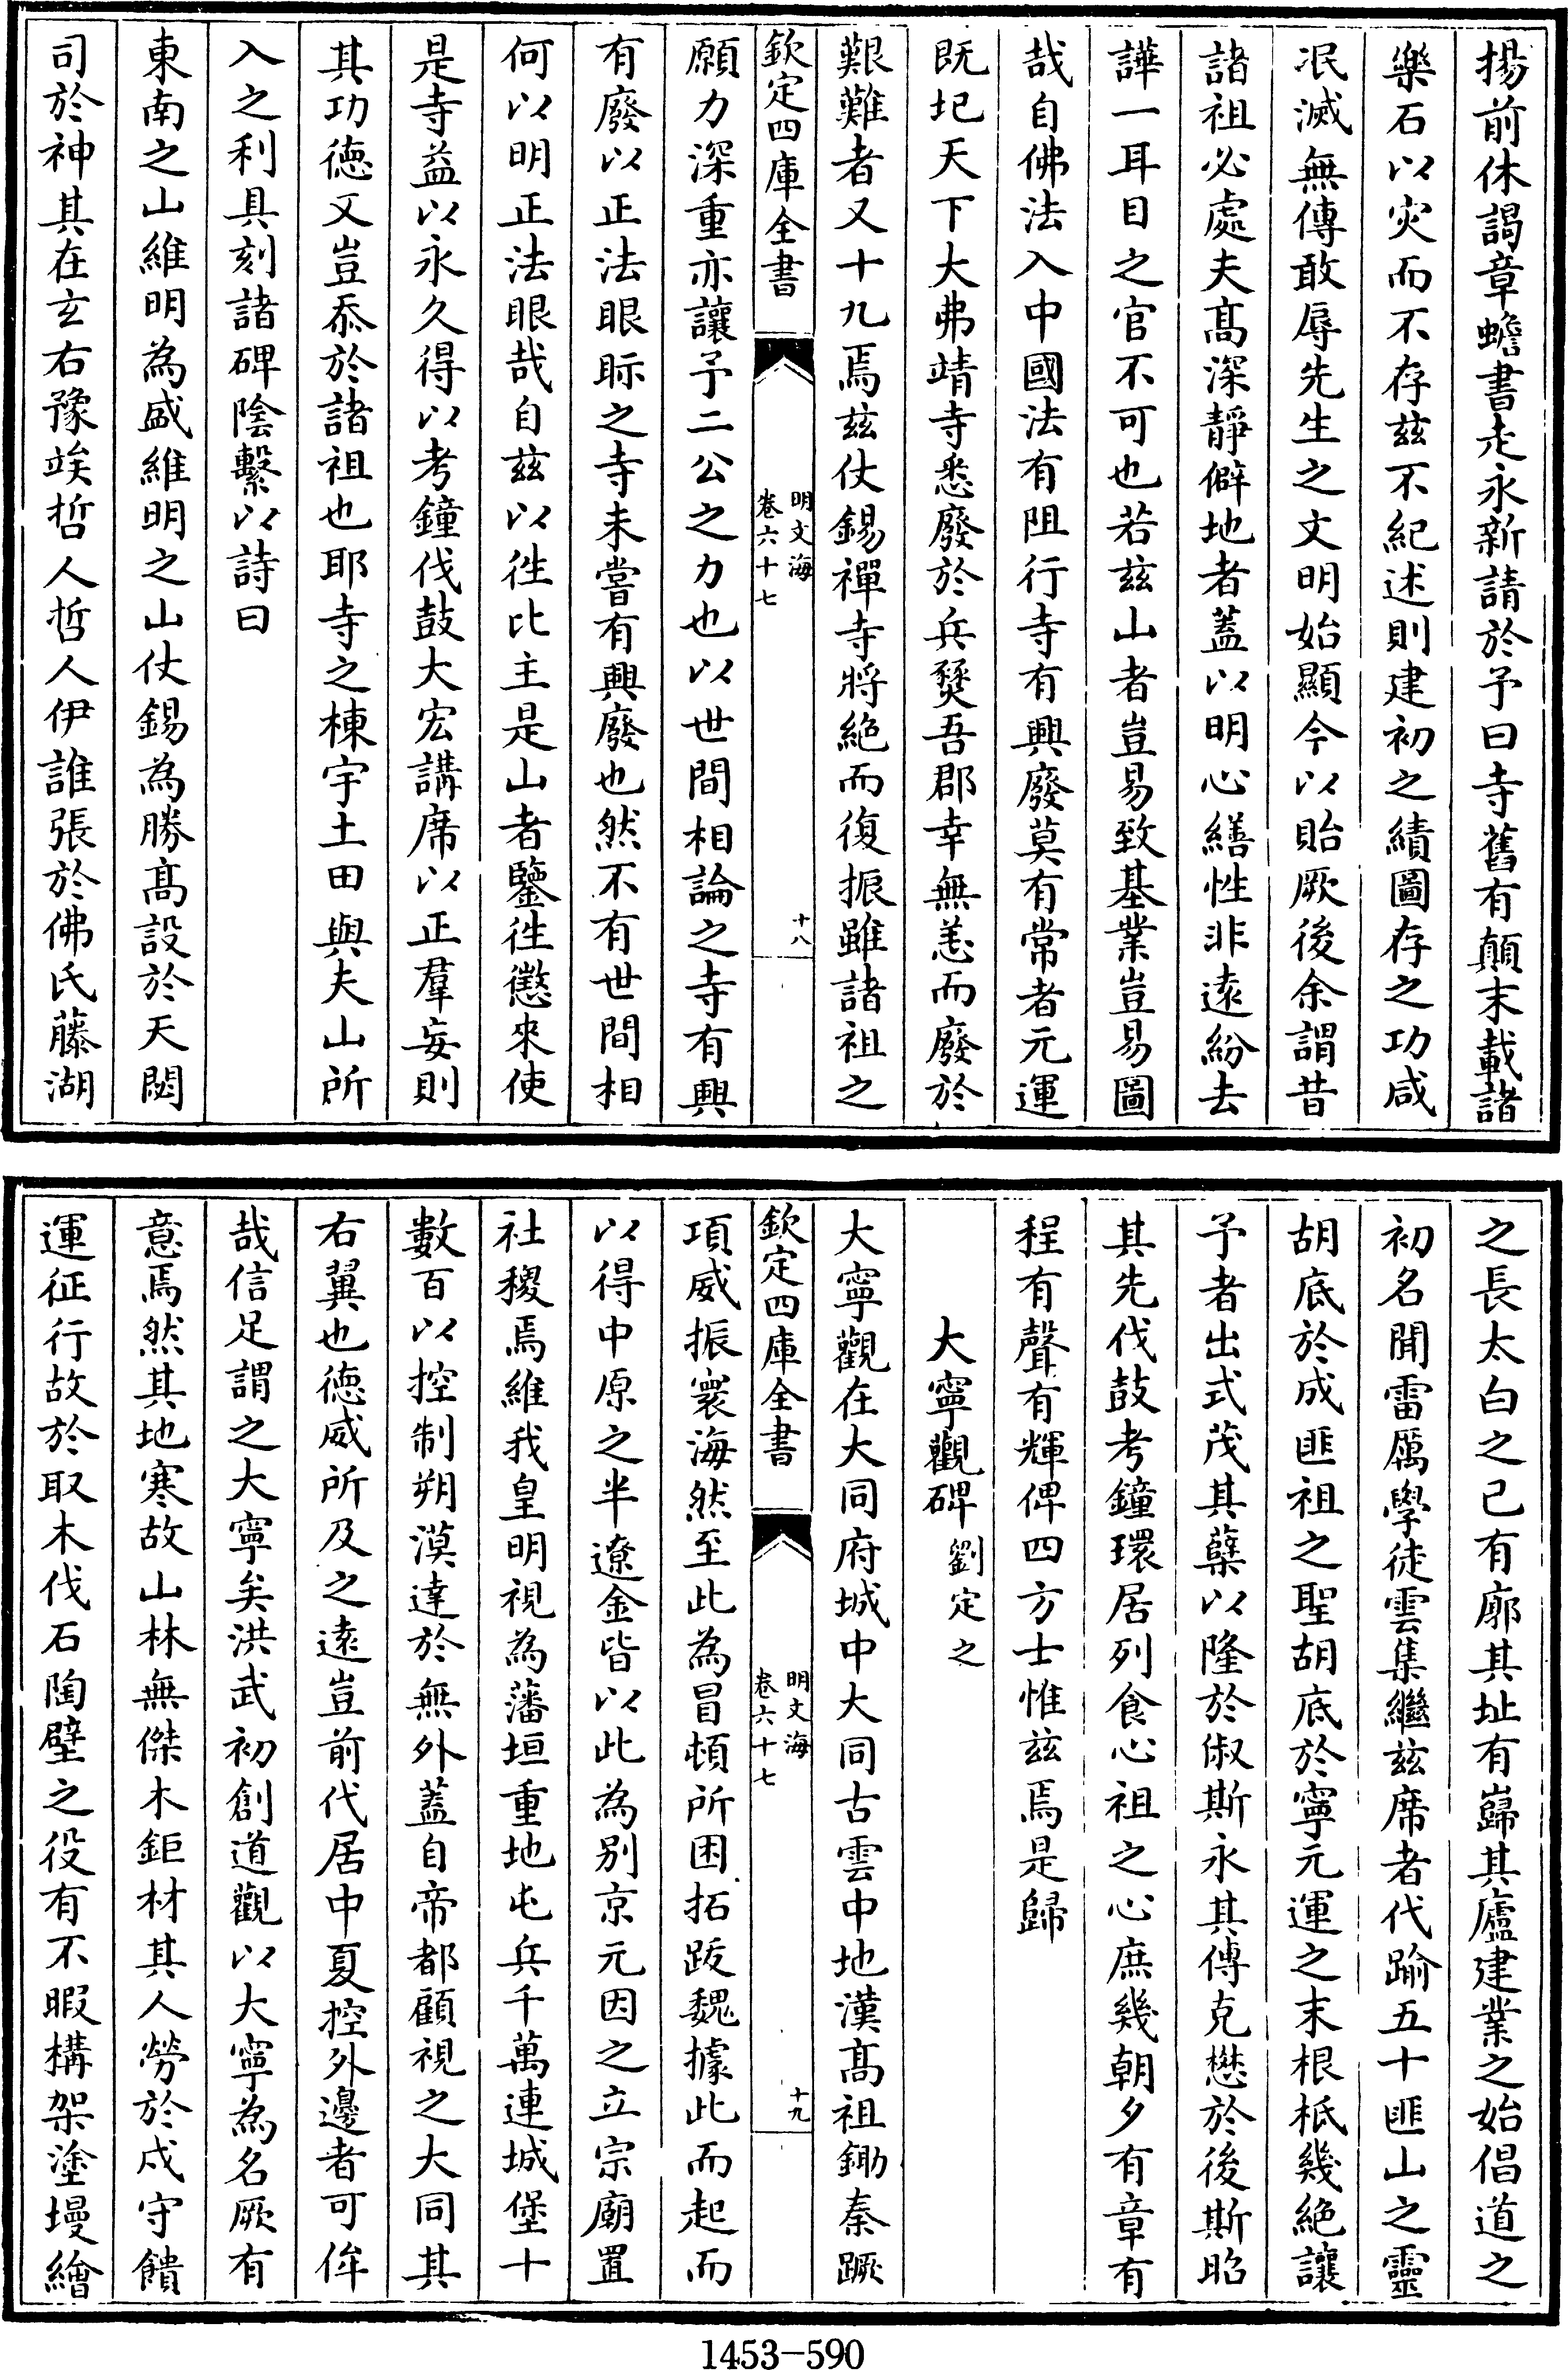 揚前休謁章蟾書走永新請於予曰寺舊有顛末載諸
樂石以灾而不存兹不紀述則建初之績圖存之功咸
泯滅無傳敢辱先生之文明始顯今以貽厥後余謂昔
諸祖必處夫髙深靜僻地者蓋以明心繕性非逺紛去
譁一耳目之官不可也若兹山者豈易致基業豈易圖
哉自佛法入中國法有阻行寺有興廢莫有常者元運
既圮天下大弗靖寺悉廢於兵燹吾郡幸無恙而廢於
艱難者又十九焉兹仗錫禪寺將絶而復振雖諸祖之
欽定四庫全書
明文海
卷六十七
十八
願力深重亦讓予二公之力也以世間相論之寺有興
有廢以正法眼眎之寺未嘗有興廢也然不有世間相
何以明正法眼哉自兹以徃比主是山者鑒徃懲來使
是寺益以永久得以考鐘伐鼓大宏講席以正羣妄則
其功徳又豈忝於諸祖也耶寺之棟宇土田與夫山所
入之利具刻諸碑陰繫以詩曰
東南之山維明為盛維明之山仗錫為勝髙設於天閟
司於神其在玄右豫竢哲人哲人伊誰張於佛氏藤湖
之長太白之已有廓其址有巋其廬建業之始倡道之
初名聞雷厲學徒雲集繼兹席者代踰五十匪山之靈
胡底於成匪祖之聖胡底於寧元運之末根柢幾絶讓
予者出式茂其蘖以隆於俶斯永其傳克懋於後斯昭
其先伐鼓考鐘環居列食心祖之心庶幾朝夕有章有
程有聲有輝俾四方士惟兹焉是歸
大寧觀碑 劉定之
大寧觀在大同府城中大同古雲中地漢髙祖鋤秦蹶
欽定四庫全書
明文海
卷六十七
十九
項威振寰海然至此為冒頓所困拓跋魏據此而起而
以得中原之半遼金皆以此為别京元因之立宗廟置
社稷焉維我皇明視為藩垣重地屯兵千萬連城堡十
數百以控制朔漠達於無外蓋自帝都顧視之大同其
右翼也徳威所及之逺豈前代居中夏控外邊者可侔
哉信足謂之大寧矣洪武初創道觀以大寧為名厥有
意焉然其地寒故山林無傑木鉅材其人勞於戍守饋
運征行故於取木伐石陶甓之役有不暇構架塗墁繪
1453-590